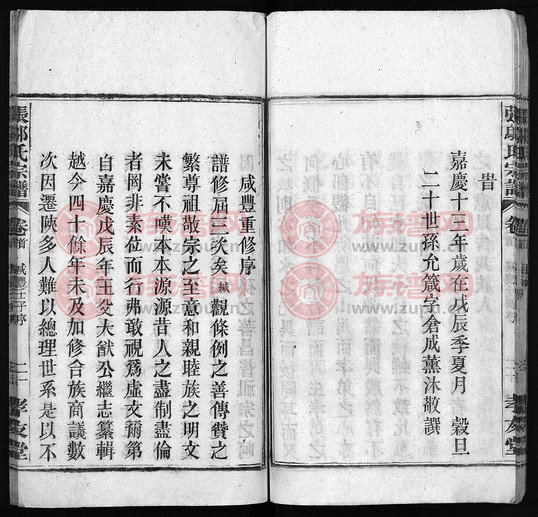 昔
嘉慶十三年歲在戊辰季夏月 穀旦
二十世孫允箴字倉成薰沐敬譔
張鄔氏宗譜
卷首
孝友堂
咸豐重修序
譜修屆三次矣緘觀條例之善傳贊之
繁尊祖敬宗之至意和親睦族之明文
未嘗不嘆本本源源昔人之盡制盡倫
者罔非素位而行弗敢視爲虛文彌第
自嘉慶戊辰年王父大猷公繼志纂輯
越今四十餘年未及加修合族商議數
次因遷陝多人難以總理世系是以不
張鄔氏宗譜
卷首
咸豐壬子序
孝友堂
族谱网
www.zupu.cn